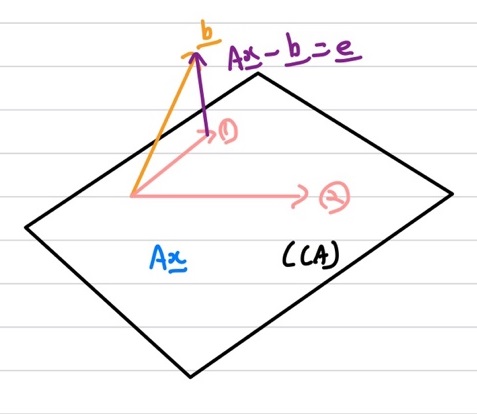 b
Ax - b = e
①
②
Ax
C(A)